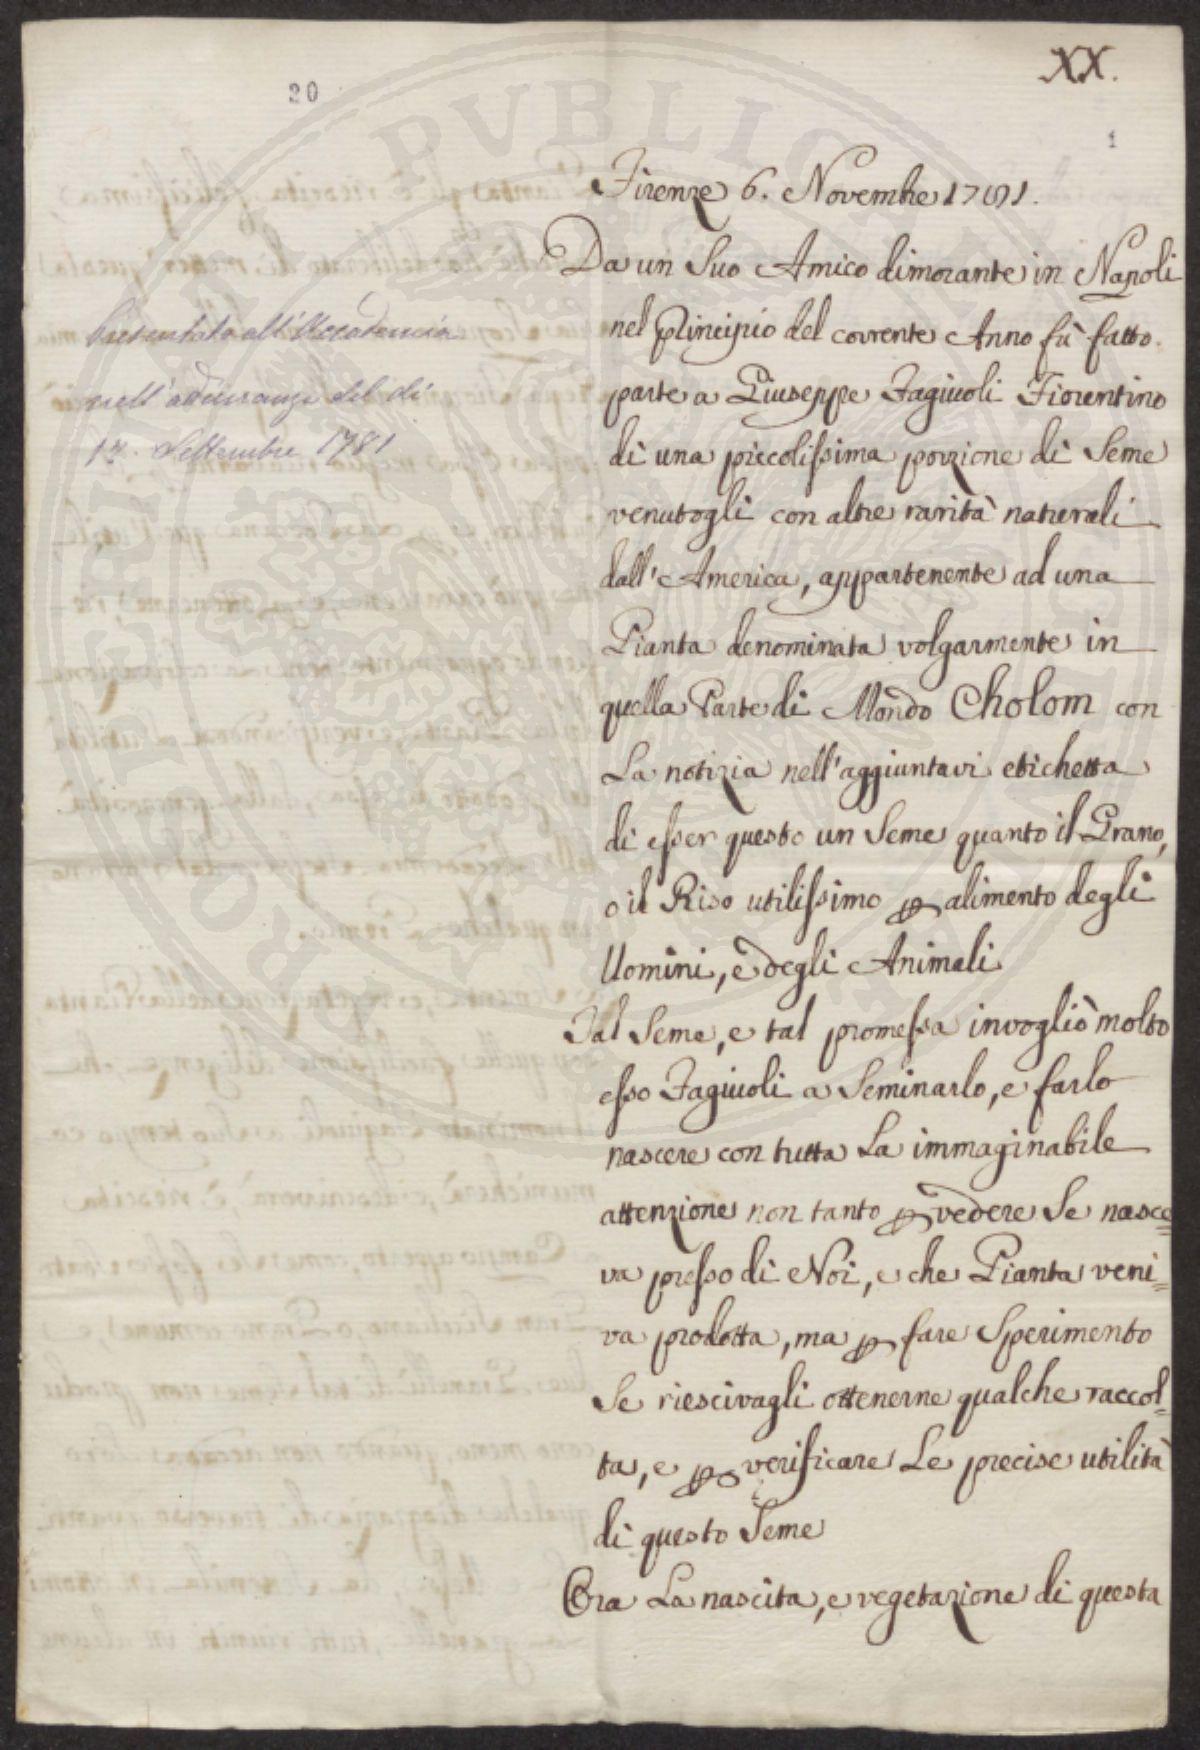 XX.
20
1
Firenze 6. Novembre 1781.
Da un Suo Amico dimorante in Napoli
nel Principio del corrente Anno fù fatto
parte a Giuseppe Fagiuoli Fiorentino
di una piccolissima porzione di Seme
venutogli con altre rarità naturali
dall'America, appartenente ad una
Pianta denominata volgarmente in
quella Parte di Mondo Cholom con
La notizia nell'aggiuntavi etichetta
di esser questo un Seme quanto il Grano,
o il Riso utilissimo p alimento degli
Uomini, e degli Animali
Tal Seme, e tal promessa invogliò molto
esso Fagiuoli a Seminarlo, e farlo
nascere con tutta La immaginabile
attenzione non tanto p vedere Se nasce=
va presso di Noi, e che Pianta veni=
va prodotta, ma p fare Sperimento
Se riescivagli ottenerne qualche raccol=
ta, e p verificare Le precise utilità
di questo Seme
Ora La nascita, e vegetazione di questa
Presentato all'Accademia
nell'adunanza del dì
12. Settembre 1781
PUBLICI